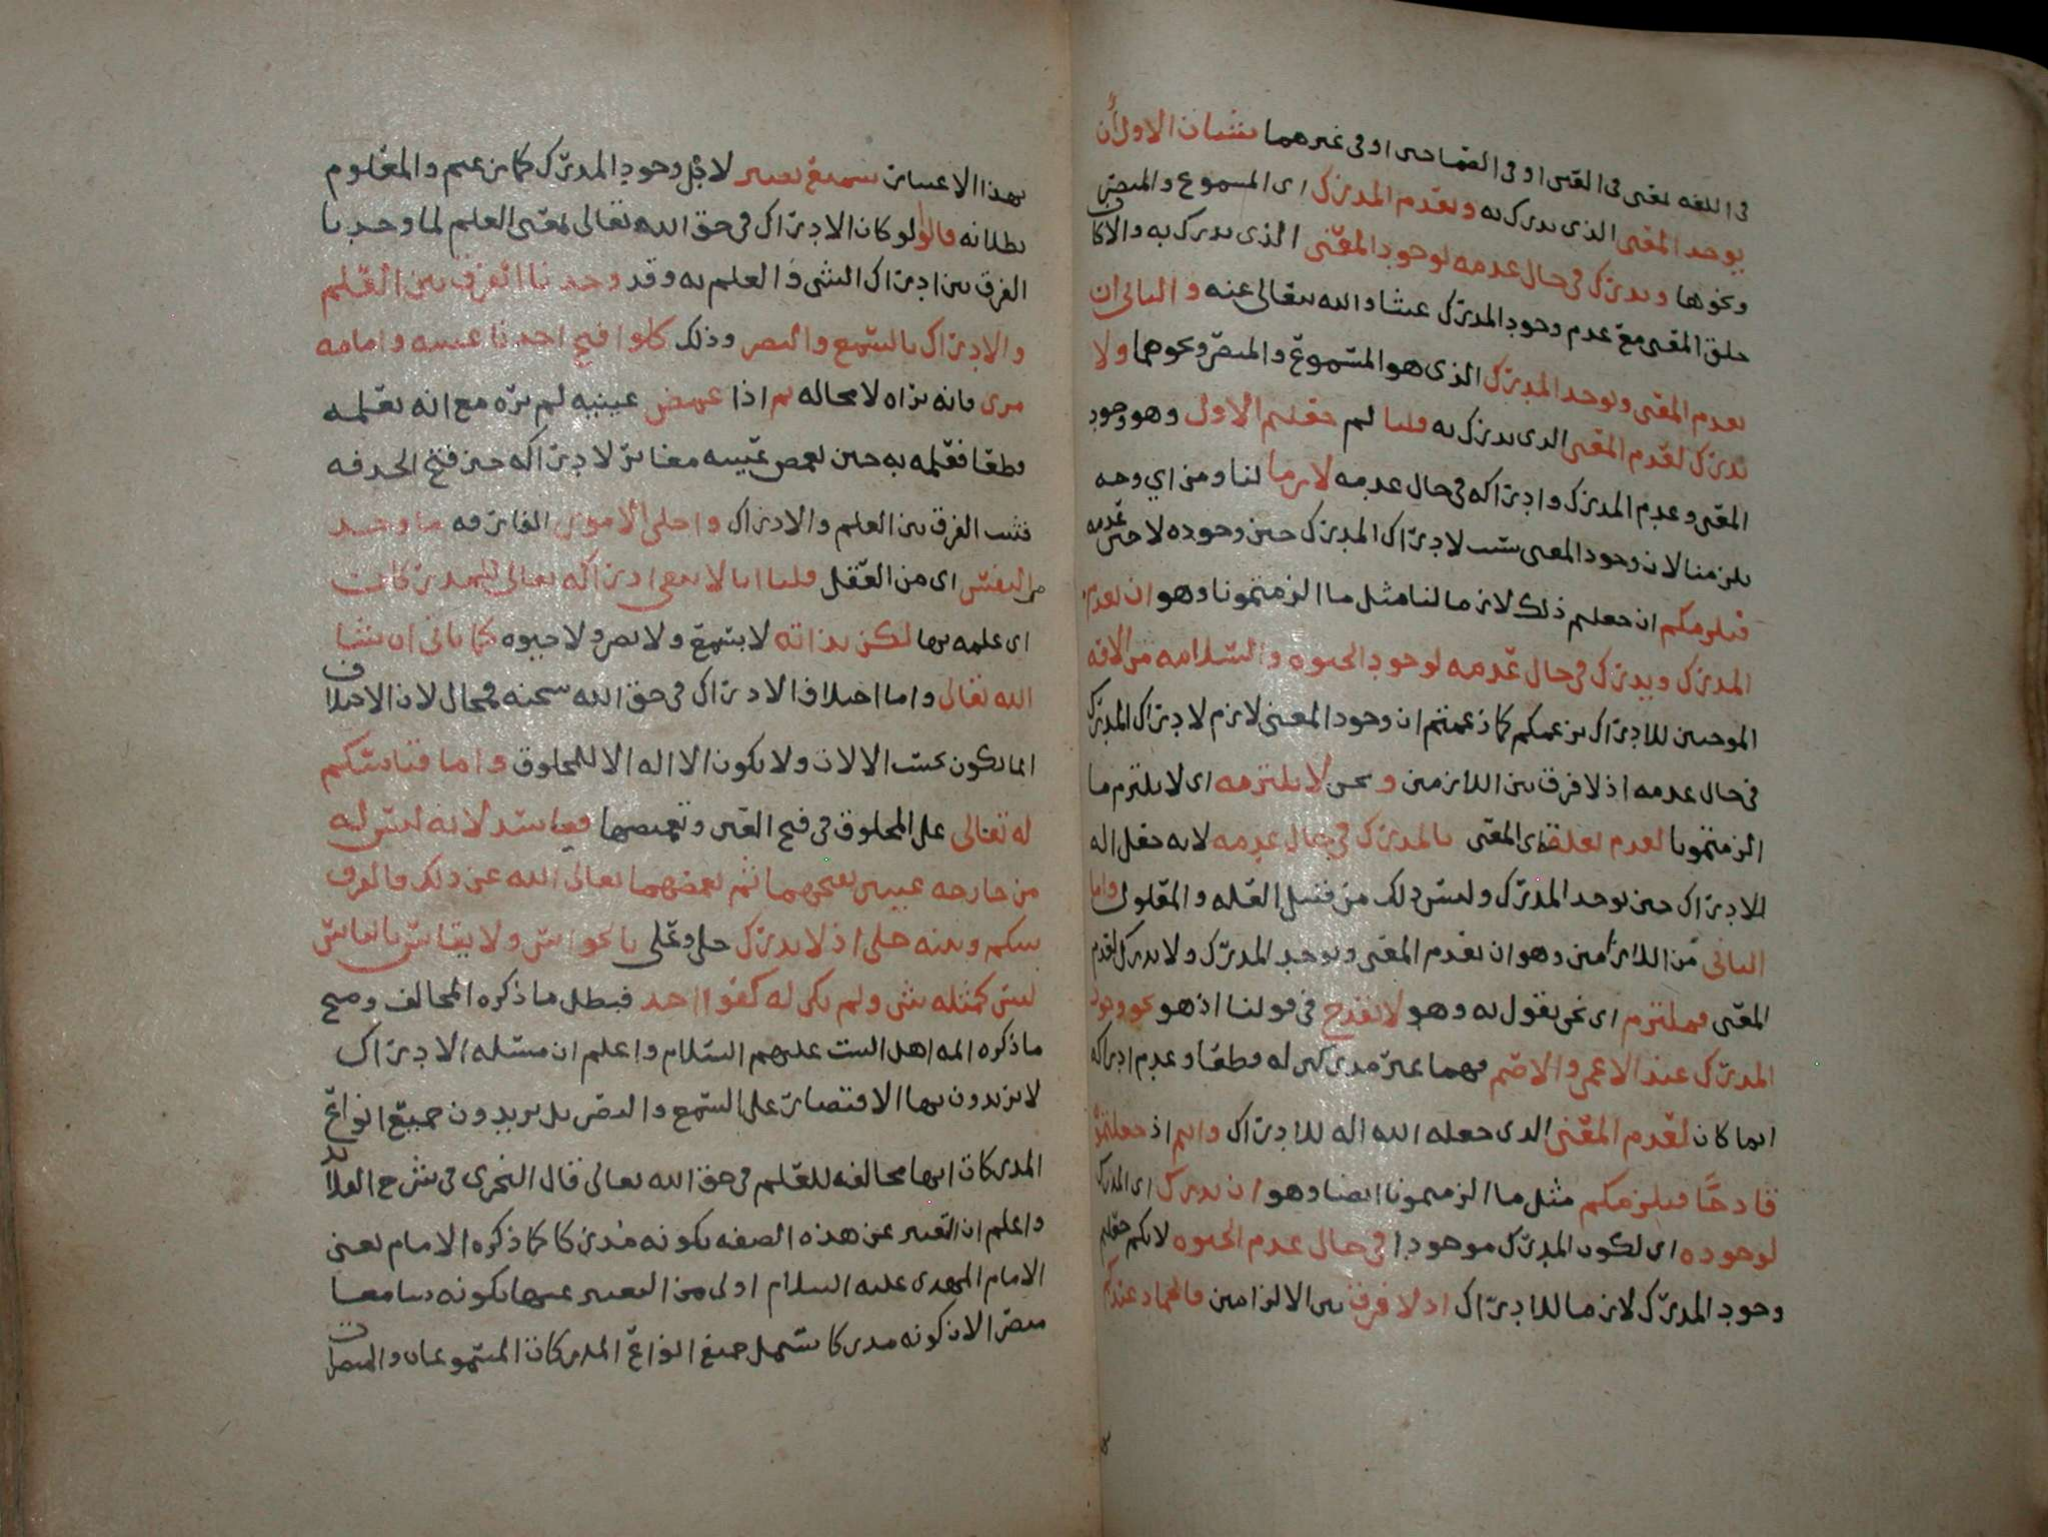 في اللغه يعنى في العين او في الصماخين او في غيرهما شيئان الاول ان
يوجد المعنى الذي يدرك به ويعدم المدرك اى المسموع والمبصر
ونحوها ويدرك في حال عدمه لوجود المعنى الذي يدرك به والا كان
خلق المعنى مع عدم وجود المدرك عبثا والله يتعالى عنه والثاني ان
يعدم المعنى ويوجد المدرك الذي هو المسموع والمبصر ونحوهما ولا
يدرك لعدم المعنى الذي يدرك به قلنا لم جعلتم الاول وهو وجود
المعنى وعدم المدرك وادراكه في حال عدمه لازما لنا ومن اي وجه
يلزمنا لان وجود المعنى سبب لادراك المدرك حين وجوده لا حين عدمه
فيلزمكم ان جعلتم ذلك لازما لنا مثل ما الزمتمونا وهو ان يعدم
المدرك ويدرك في حال عدمه لوجود الحيوه والسلامه من الافه
الموجبين للادراك بزعمكم كما زعمتم ان وجود المعنى لازم لادراك المدرك
في حال عدمه اذ لا فرق بين اللازمين ونحن لا نلتزمه اى لا نلتزم ما
الزمتمونا لعدم تعلق اى المعنى بالمدرك في حال عدمه لانه جعل اله
للادراك حين يوجد المدرك وليس ذلك من قبيل العله والمعلول واما
الثاني من اللازمين وهو ان يعدم المعنى ويوجد المدرك ولا يدرك لعدم
المعنى فملتزم اى نحن نقول به وهو لا يقدح في قولنا اذ هو نحو وجود
المدرك عند الاعمى والاصم فهما غير مدركين له قطعا وعدم ادراكه
انما كان لعدم المعنى الذي جعله الله اله للادراك وانتم اذ جعلتموه
قادحا فيلزمكم مثل ما الزمتمونا ايضا وهو ان يدرك اى المدرك
لوجوده اى لكون المدرك موجودا في حال عدم الحيوه لانكم جعلتم
وجود المدرك لازما للادراك اذ لا فرق بين الالزامين فالجماد عندكم
بهذا الاعتبار سميع بصير لاجل وجود المدرك كما زعمتم والمعلوم
بطلانه قالوا لو كان الادراك في حق الله تعالى بمعنى العلم لما وجدنا
الفرق بين ادراك الشي والعلم به وقد وجدنا الفرق بين العلم
والادراك بالسمع والبصر وذلك كلو افتح احدنا عينيه وامامه
مرى فانه يراه لا محاله ثم اذا غمض عينيه لم يره مع انه يعلمه
قطعا فعلمه به حين تغميض عينيه مغاير لادراكه حين فتح الحدقه
فثبت الفرق بين العلم والادراك واجلى الامور الفارقه ما وجد
من النفس اى من العقل قلنا انا لا نعنى ادراكه تعالى للمدركات
اى علمه بها لكن بذاته لا بسمع ولا بصر ولا حيوه كما ياتي ان شا
الله تعالى واما اختلاف الادراك في حق الله سبحنه فمحال لان الاختلاف
انما يكون بحسب الالات ولا يكون الا اله الا للمخلوق واما قياسكم
له تعالى على المخلوق في فتح العين وتغميضها ففاسد لانه ليس له
من جارحه عينين يفتحهما ثم يغمضهما تعالى الله عن ذلك فالفرق
بينكم وبينه جلى اذ لا يدرك جل وعلى بالحواس ولا يقاس بالناس
ليس كمثله شى ولم يكن له كفوا احد فبطل ما ذكره المخالف وصح
ما ذكره ايمه اهل البيت عليهم السلام واعلم ان مسئله الادراك
لا يريدون بها الاقتصار على السمع والبصر بل يريدون جميع انواع
المدركات انها مخالفه للعلم في حق الله تعالى قال النجرى في شرح القلائد
واعلم ان التعبير عن هذه الصفه بكونه مدركا كما ذكره الامام يعنى
الامام المهدى عليه السلام اولى من التعبير عنها بكونه سامعا
مبصرا لان كونه مدركا يشمل جميع انواع المدركات المسموعات والمبصرات